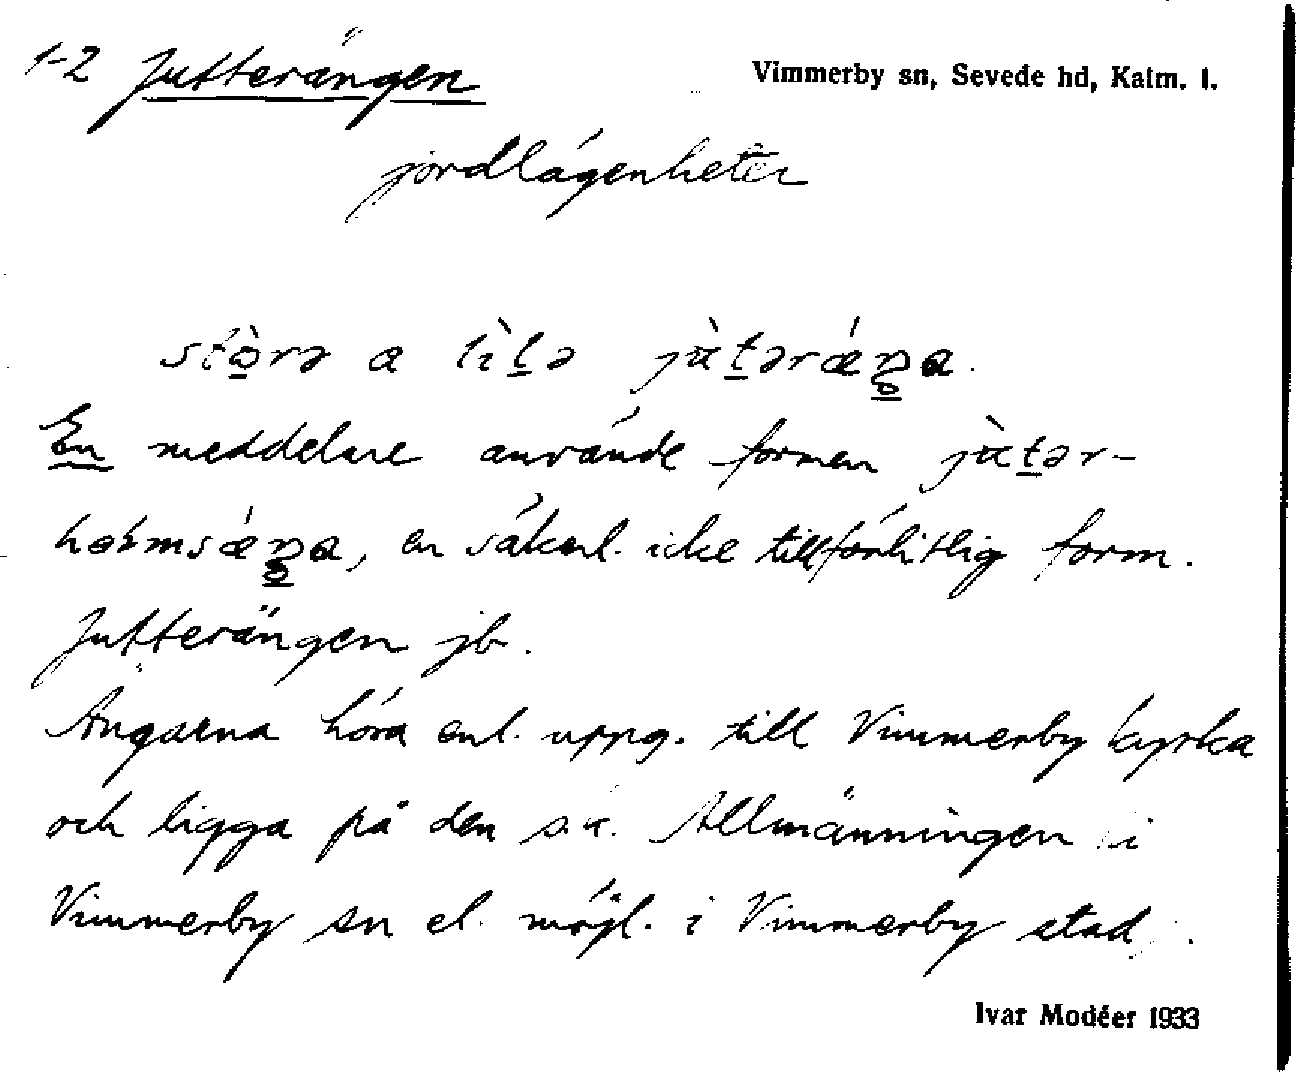 1-2 Jutterängen
Vimmerby sn, Sevede hd, Kalm. l.
jordlägenheter
stòrə a lìtə jùtərǽŋa.
En meddelare använde formen jùtər-
holmsǽŋa, en säkerl. icke tillförlitlig form.
Jutterängen jb.
Ängarna höra enl. uppg. till Vimmerby kyrka
och ligga på den s.k. Allmänningen i
Vimmerby sn el. möjl. i Vimmerby stad.
Ivar Modéer 1933